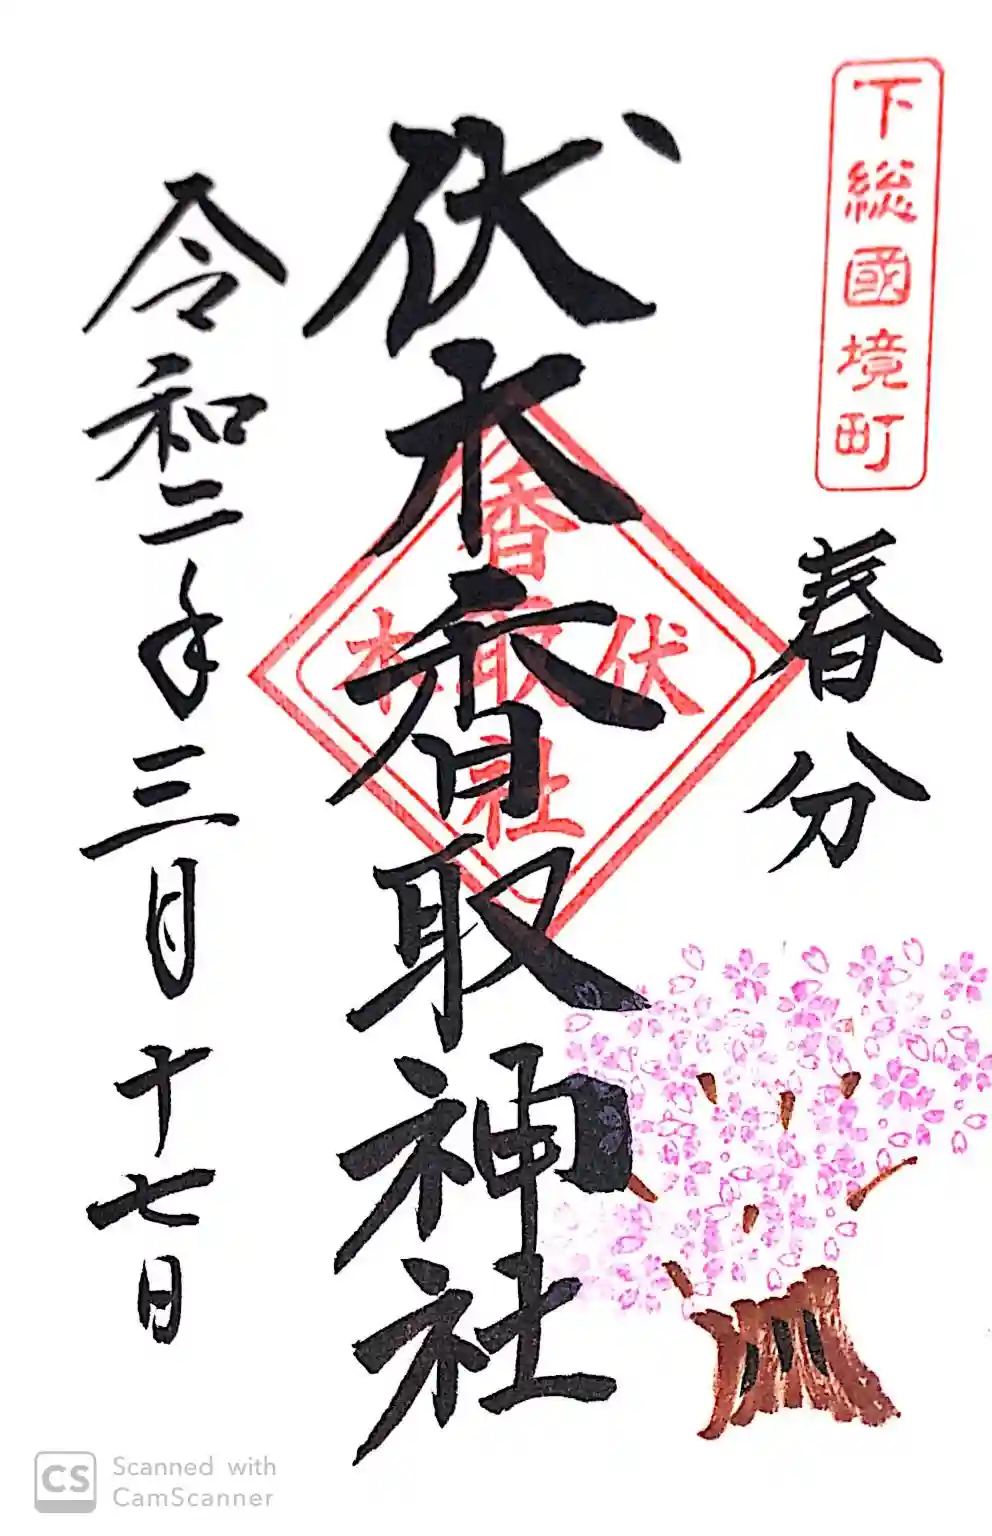 下総國境町
春分
伏木香取神社
香取
伏木
社
令和二年三月十七日
CS Scanned with
CamScanner